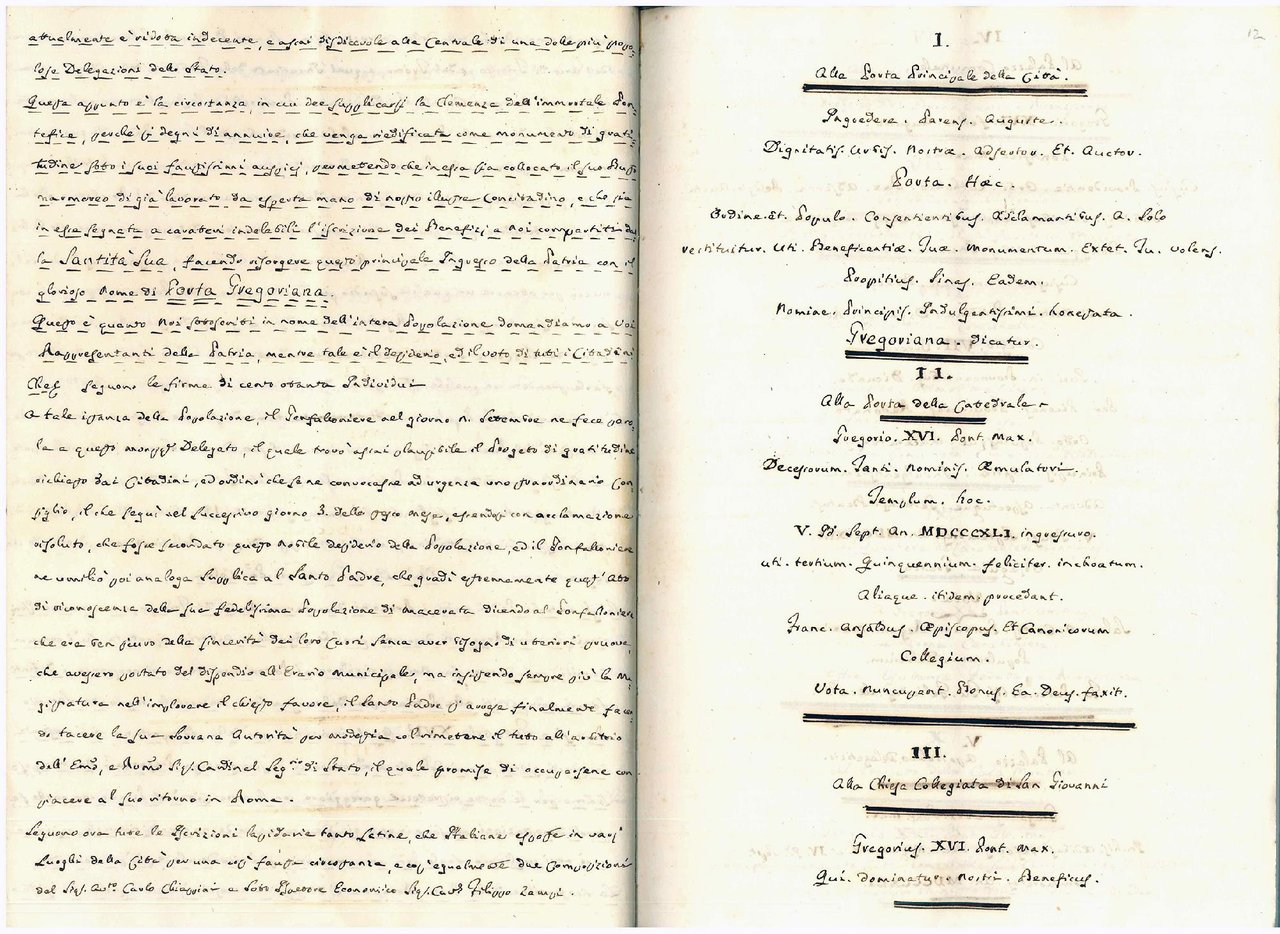 attualmente è ridotta indecente, e assai disdicevole alla Centrale di una delle più popo-
lose Delegazioni dello Stato.
Questa appunto è la circostanza, in cui dee supplicarsi la Clemenza dell'immortale Pon-
tefice, perchè si degni di annuire, che venga riedificata come monumento di grati-
tudine sotto i suoi faustissimi auspicj, permettendo che in essa sia collocato il suo Busto
marmoreo di già lavorato da esperta mano di nostro illustre Concittadino, e che sia
in essa segnata a caratteri indelebili l'iscrizione dei Benefizj a noi compartiti dal
la Santità Sua, facendo risorgere questo principale Ingresso della Patria con il
glorioso Nome di Porta Gregoriana.
Questo è quanto Noi sottoscritti in nome dell'intera Popolazione domandiamo a Voi
Rappresentanti della Patria, mentre tale è il desiderio, ed il voto di tutti i Cittadini
seguono le firme di cento ottanta Individui
A tale istanza della Popolazione, il Gonfaloniere nel giorno Settembre ne fece paro-
la a questo Delegato, il quale trovò assai plausibile il Progetto di gratitudine
richiesto dai Cittadini, ed ordinò che se ne convocasse ad urgenza uno straordinario Con-
siglio, il che seguì nel successivo giorno 3. dello stesso mese, essendosi con acclamazione
risoluto, che fosse secondato questo nobile desiderio della Popolazione, ed il Gonfaloniere
ne umiliò poi analoga Supplica al Santo Padre, che gradì estremamente quest'Atto
di riconoscenza della sua fedelissima Popolazione di Macerata dicendo al Gonfaloniere
che era ben sicuro della sincerità dei loro Cuori senza aver bisogno di ulteriori pruove,
che avessero portato del dispendio all'Erario Municipale, ma insistendo sempre più la Ma-
gistratura nell'implorare il chiesto favore, il Santo Padre s'arrese finalmente facen-
do tacere la sua Sovrana Autorità per modestia col rimettere il tutto all'arbitrio
dell'Emo, e Rmo Sig. Cardinal Segrio di Stato, il quale promise di occuparsene con
piacere al suo ritorno in Roma.
Seguono ora tutte le Iscrizioni lapidarie tanto Latine, che Italiane esposte in varj
Luoghi della Città per una così fausta circostanza, e così egualmente due Composizioni
del Sig. Carlo Chiappini e Sotto Economico Sig. Filippo Zampi.
12
I.
Alla Porta Principale della Città.
Ingredere. Parens. Auguste.
Dignitatis. Urbis. Nostrae. Adsertor. Et. Auctor.
Porta. Haec.
Ordine. Et. Populo. Consentientibus. Adclamantibus. A. Solo
restituitur. Uti. Beneficentiæ. Tuæ. Monumentum. Extet. Tu. volens.
Propitius. Sinas. Eadem.
Nomine. Principis. Indulgentissimi. honestata.
Gregoriana. Dicatur.
II.
Alla Porta della Cattedrale
Gregorio. XVI. Pont. Max.
Decessorum. Tanti. Nominis. Æmulatori.
Templum. hoc.
V. Id. Sept. An. MDCCCXLI. ingressuro.
uti. tertium. Quinquennium. feliciter. inchoatum.
Aliaque. itidem. procedant.
Franc. Ansaldus. Æpiscopus. Et Canonicorum
Collegium.
Vota. Nuncupant. Bonus. Ea. Deus. faxit.
III.
Alla Chiesa Collegiata di San Giovanni
Gregorius. XVI. Pont. Max.
Qui. dominatur. nostri. Beneficus.